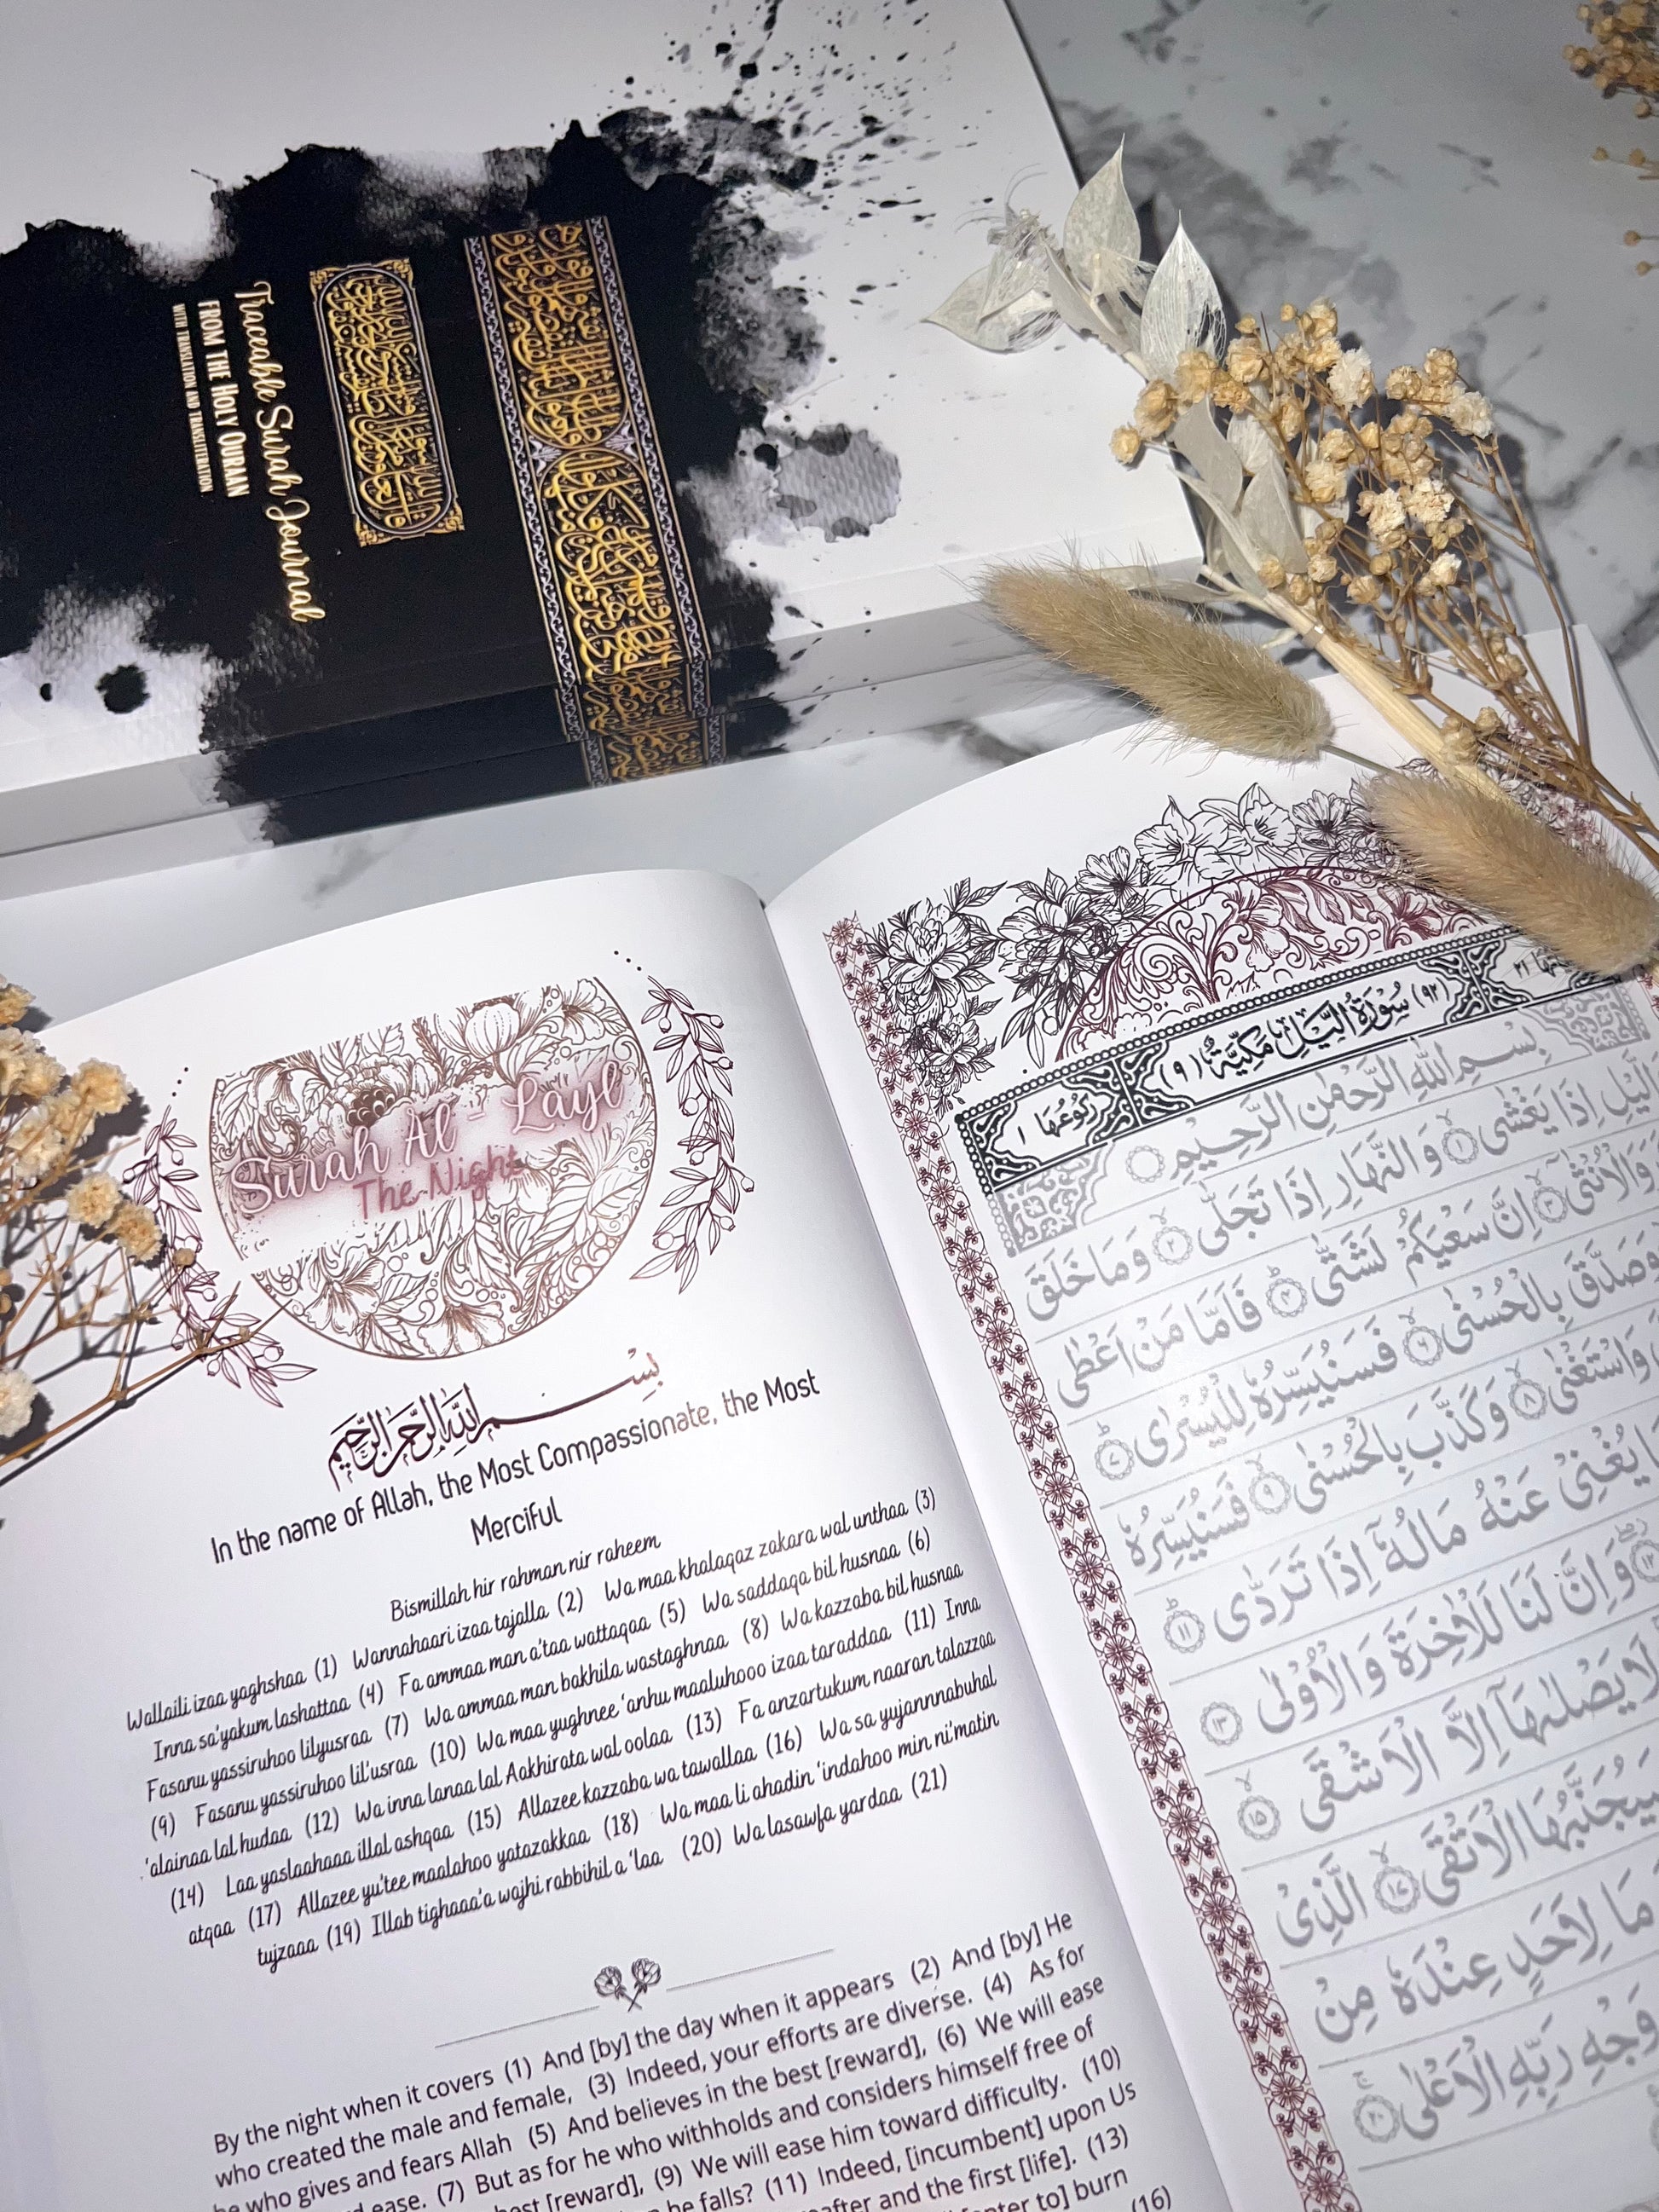 Traceable Surah Journal
FROM THE HOLY QURAAN
WITH TRANSLATION AND TRANSLITERATION
Surah Al - Layl
The Night
بِسْمِ اللهِ الرَّحْمٰنِ الرَّحِيمِ
In the name of Allah, the Most Compassionate, the Most
Merciful
Bismillah hir rahman nir raheem
Wallaili izaa yaghshaa (1) Wannahaari izaa tajalla (2) Wa maa khalaqaz zakara wal unthaa (3)
Inna sa'yakum lashattaa (4) Fa ammaa man a'taa wattaqaa (5) Wa saddaqa bil husnaa (6)
Fasanu yassiruhoo lilyusraa (7) Wa ammaa man bakhila wastaghnaa (8) Wa kazzaba bil husnaa
(9) Fasanu yassiruhoo lil'usraa (10) Wa maa yughnee 'anhu maaluhooo izaa taraddaa (11) Inna
'alainaa lal hudaa (12) Wa inna lanaa lal Aakhirata wal oolaa (13) Fa anzartukum naaran talazzaa
(14) Laa yaslaahaaa illal ashqaa (15) Allazee kazzaba wa tawallaa (16) Wa sa yujannnabuhal
atqaa (17) Allazee yu'tee maalahoo yatazakkaa (18) Wa maa li ahadin 'indahoo min ni'matin
tujzaaa (19) Illab tighaaa'a wajhi rabbihil a 'laa (20) Wa lasawfa yardaa (21)
By the night when it covers (1) And [by] the day when it appears (2) And [by] He
who created the male and female, (3) Indeed, your efforts are diverse. (4) As for
he who gives and fears Allah (5) And believes in the best [reward], (6) We will ease
ease. (7) But as for he who withholds and considers himself free of
best [reward], (9) We will ease him toward difficulty. (10)
he falls? (11) Indeed, [incumbent] upon Us
and the first [life]. (13)
to] burn
(16)
رُكُوْعُهَا ١ (٩٢) سُوْرَةُ الَّيْلِ مَكِّيَّةٌ (٩)
بِسْمِ اللهِ الرَّحْمٰنِ الرَّحِيْمِ
الَّيْلِ اِذَا يَغْشٰى ١ وَالنَّهَارِ اِذَا تَجَلّٰى ٢ وَمَا خَلَقَ
وَالْاُنْثٰى ٣ اِنَّ سَعْيَكُمْ لَشَتّٰى ٤ فَاَمَّا مَنْ اَعْطٰى
وَصَدَّقَ بِالْحُسْنٰى ٦ فَسَنُيَسِّرُهٗ لِلْيُسْرٰى ٧
وَاسْتَغْنٰى ٨ وَكَذَّبَ بِالْحُسْنٰى ٩ فَسَنُيَسِّرُهٗ
يُغْنِيْ عَنْهُ مَالُهٗٓ اِذَا تَرَدّٰى ١١
١٢ وَاِنَّ لَنَا لَلْاٰخِرَةَ وَالْاُوْلٰى ١٣
لَا يَصْلٰىهَآ اِلَّا الْاَشْقَى ١٥
سَيُجَنَّبُهَا الْاَتْقَى ١٧ الَّذِيْ
مَا لِاَحَدٍ عِنْدَهٗ مِنْ
وَجْهِ رَبِّهِ الْاَعْلٰى ٢٠